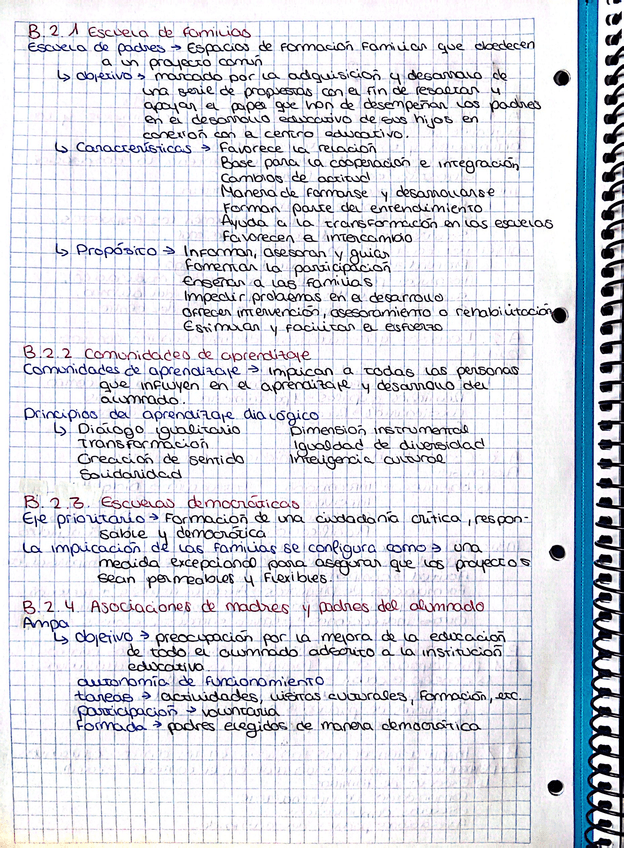 B.2.1 Escuela de familias
Escuela de padres → Espacios de formación familiar que obedecen
a un proyecto común
↳ objetivo → marcado por la adquisición y desarrollo de
una serie de propuestas con el fin de resaltar y
apoyar el papel que han de desempeñar los padres
en el desarrollo educativo de sus hijos en
conexión con el centro educativo.
↳ Características → Favorece la relación
Base para la cooperación e integración
Cambios de actitud
Manera de formarse y desarrollarse
Forman parte del entendimiento
Ayuda a la transformación en las escuelas
Favorecen el intercambio
↳ Propósito → Informar, asesorar y guiar
Fomentar la participación
Enseñar a las familias
Impedir problemas en el desarrollo
ofrecer intervención, asesoramiento o rehabilitación
Estimular y facilitar el esfuerzo
B.2.2 Comunidades de aprendizaje
Comunidades de aprendizaje → Implican a todas las personas
que influyen en el aprendizaje y desarrollo del
alumnado.
Principios del aprendizaje dialógico
↳ Diálogo igualitario Dimensión instrumental
Transformación Igualdad de diversidad
Creación de sentido Inteligencia cultural
Solidaridad
B.2.3. Escuelas democráticas
Eje prioritario → Formación de una ciudadanía crítica, respon-
sable y democrática
La implicación de las familias se configura como → una
medida excepcional para asegurar que los proyectos
sean permeables y flexibles.
B.2.4. Asociaciones de madres y padres del alumnado
Ampa
↳ objetivo → preocupación por la mejora de la educación
de todo el alumnado adscrito a la institución
educativa
autonomía de funcionamiento
tareas → actividades, visitas culturales, formación, etc.
participación → voluntaria
Formada → padres elegidos de manera democrática